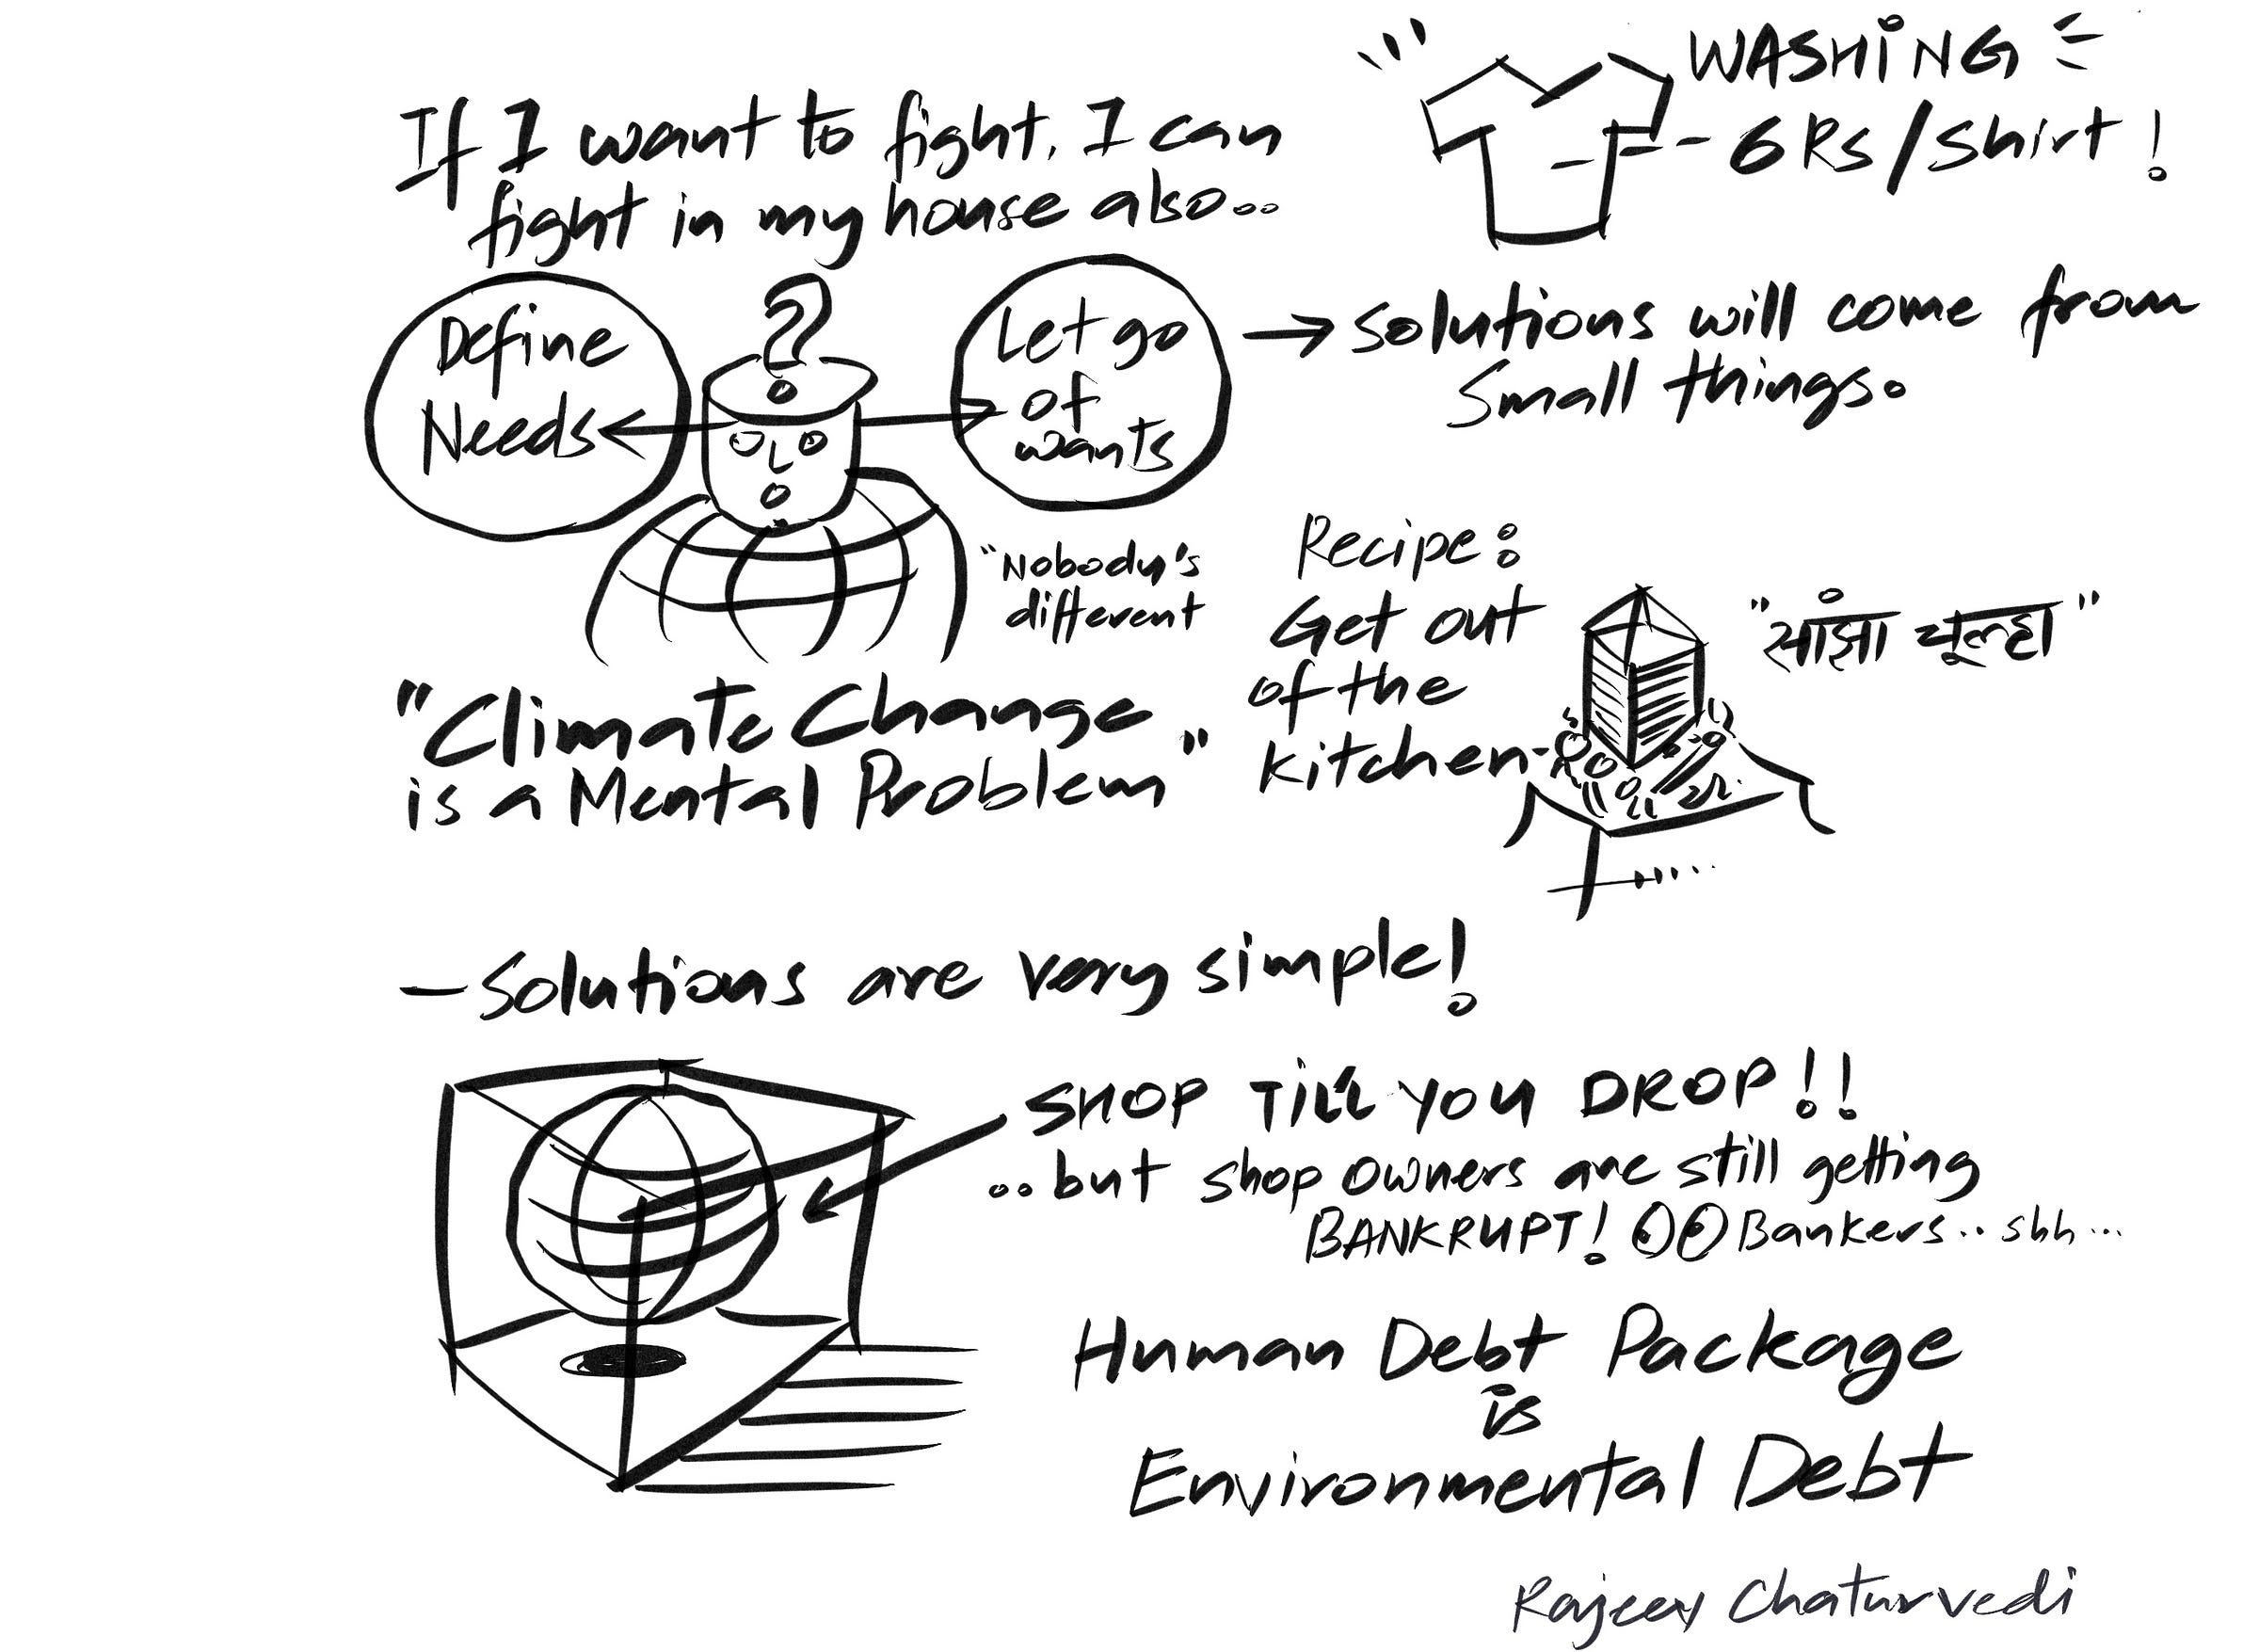 If I want to fight, I can
fight in my house also..
WASHING
- 6 Rs/shirt!
Define
Needs
?
Let go
of
wants
→ solutions will come from
small things.
"Nobody's
different
"Climate Change
is a Mental Problem"
Recipe:
Get out
of the
kitchen-
"सांझा चूल्हा"
- Solutions are very simple!
SHOP TILL YOU DROP!!
..but shop owners are still getting
BANKRUPT! Bankers.. shh...
Human Debt Package
is
Environmental Debt
Rajeev Chaturvedi